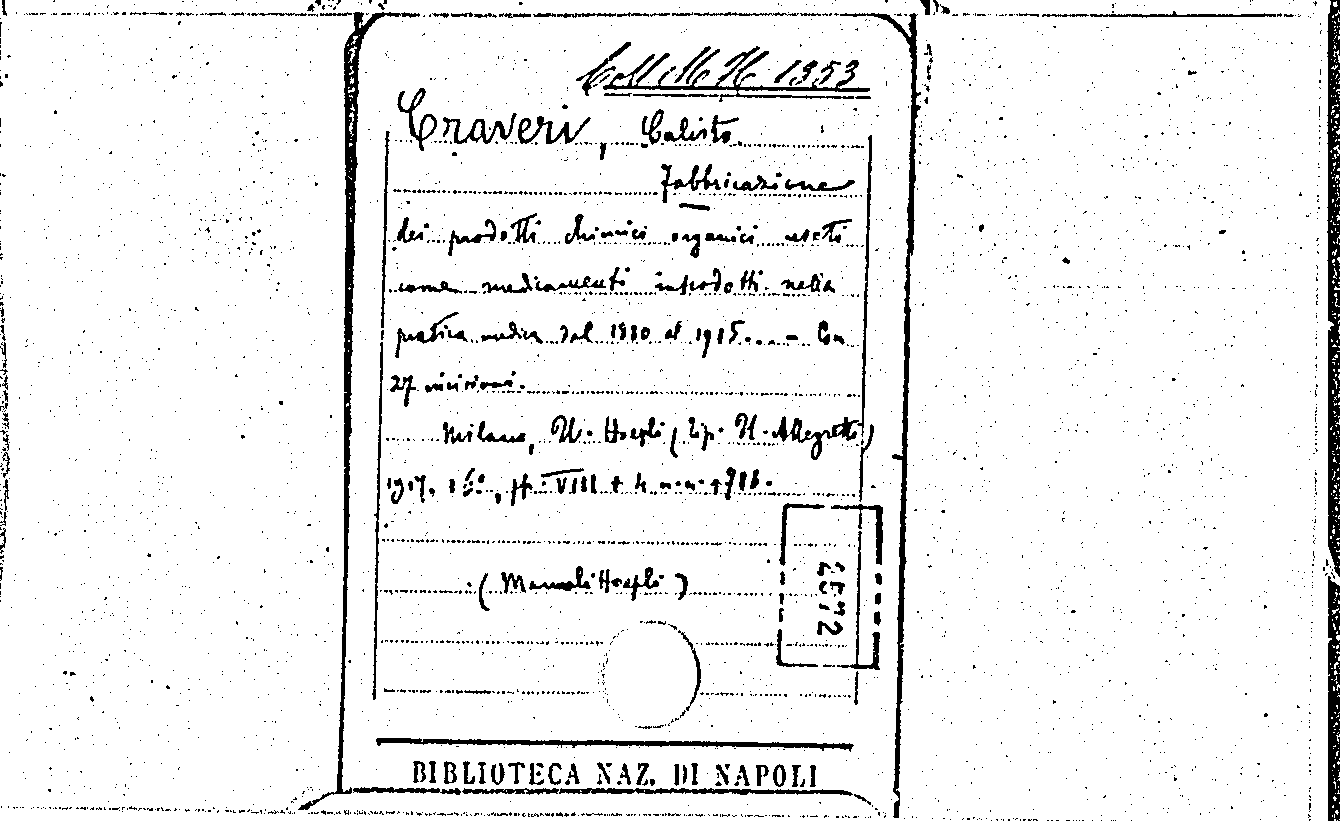 Coll. M. H. 1353
Craveri, Calisto.
Fabbricazione
dei prodotti chimici organici usati
come medicamenti introdotti nella
pratica medica dal 1880 al 1915.... - Con
27 incisioni.
Milano, U. Hoepli (Tip. U. Allegretti)
1917. 16°, pp. VIII + 4 n.n. +
(Manuali Hoepli)
BIBLIOTECA NAZ. DI NAPOLI